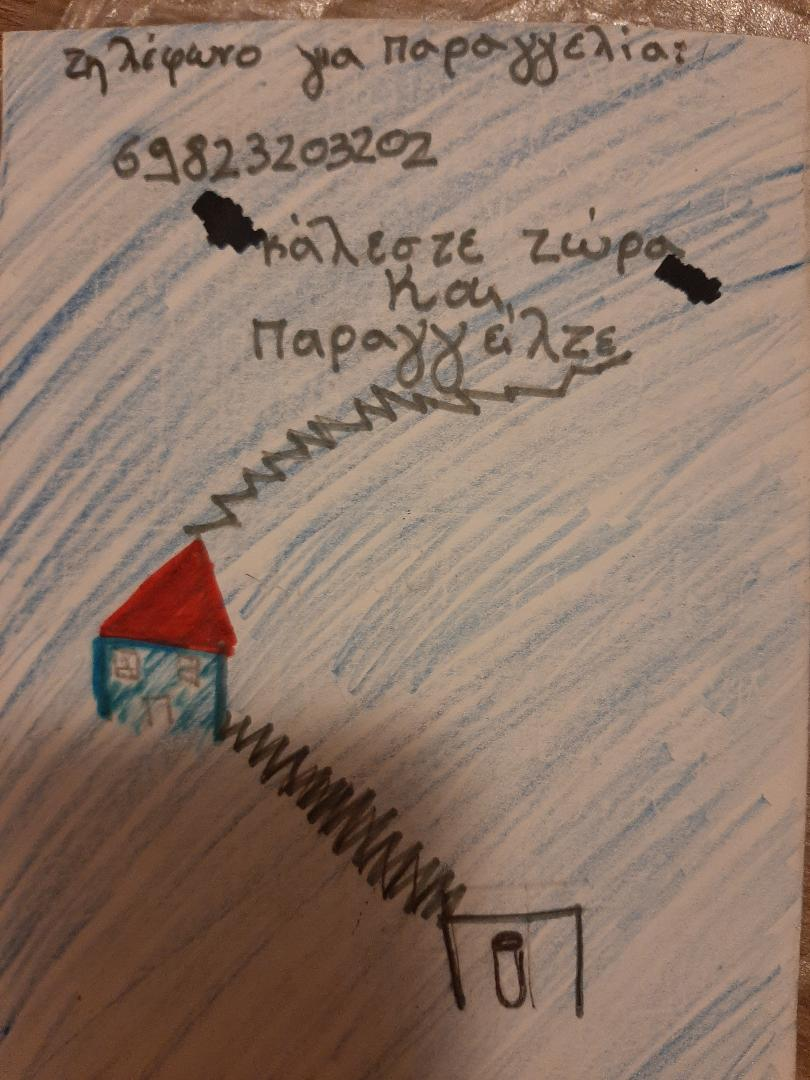 τηλέφωνο για παραγγελία:
69823203202
κάλεστε τώρα
και
παραγγείλτε